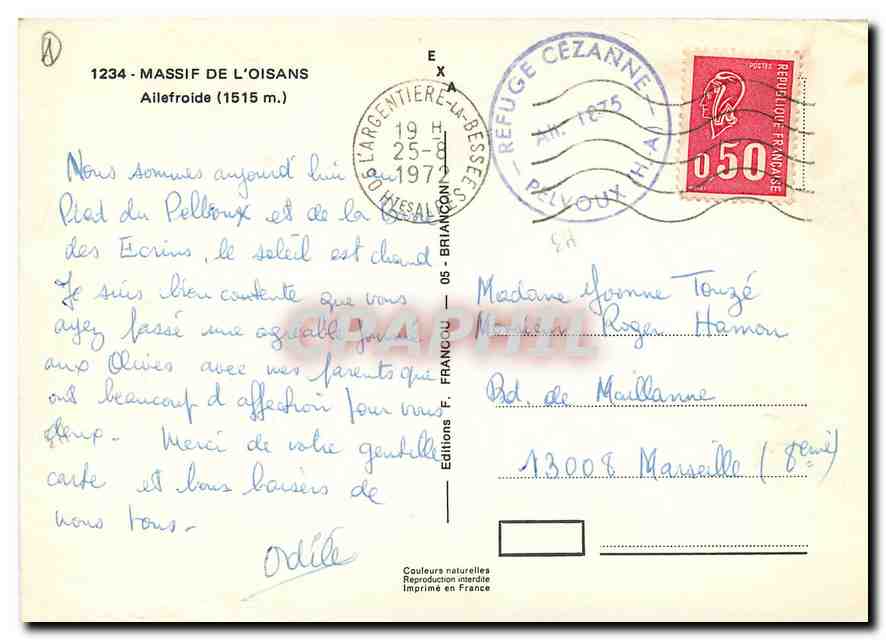 1
1234 - MASSIF DE L'OISANS
Ailefroide (1515 m.)
EXA
05 L'ARGENTIERE-LA-BESSEE
19 H
25-8
1972
HTES ALPES
REFUGE CEZANNE
Alt. 1875
PELVOUX (H.A)
POSTES
REPUBLIQUE FRANCAISE
0,50
Nous sommes aujourd'hui au
Pied du Pelvoux et de la Barre
des Ecrins, le soleil est chaud
Je suis bien contente que vous
ayez passé une agréable journée
aux Olives avec mes parents que
ont beaucoup d'affection pour vous
deux. Merci de votre gentille
carte et bons baisers de
nous tous.
Odile
Editions F. FRANCOU — 05 - BRIANCON
CPAPHIL
Madame Yvonne Touzé
Monsieur Roger Hamon
Bd. de Maillanne
13008 Marseille (8eme)
Couleurs naturelles
Reproduction interdite
Imprimé en France